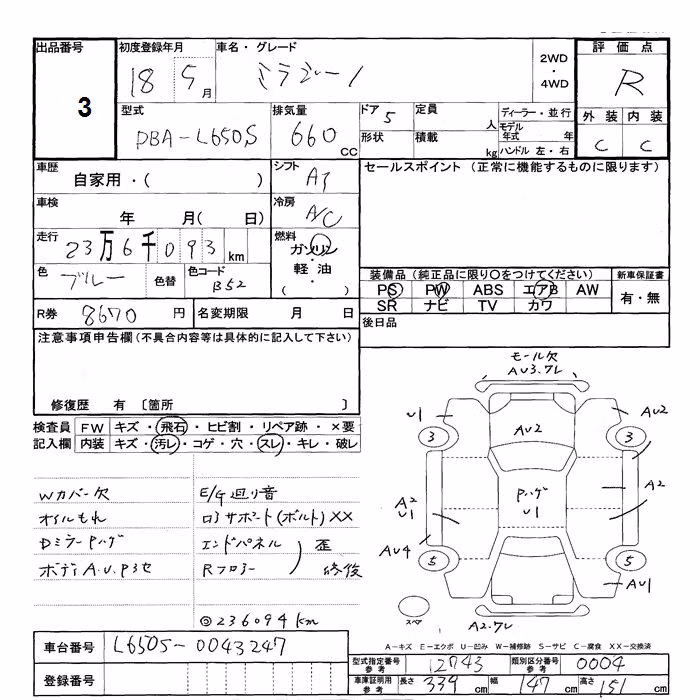 出品番号 初度登録年月 車名・グレード 2WD・4WD 評価点
3 18 5月 ミラジーノ R
型式 排気量 ドア 5 定員 人 ディーラー・並行 外装 内装
DBA-L650S 660 CC 形状 積載 kg モデル年式 年 C C
ハンドル 左・右
車歴 自家用・( ) シフト AT セールスポイント (正常に機能するものに限ります)
車検 年 月( 日) 冷房 A/C
走行 23万6千093km 燃料 ガソリン・軽油・( )
色 ブルー 色替 色コード B52
装備品(純正品に限り○をつけてください) 新車保証書
PS PW ABS エアB AW 有・無
SR ナビ TV カワ
R券 8670 円 名変期限 月 日 後日品
注意事項申告欄(不具合内容等は具体的に記入して下さい)
修復歴 有 〔箇所 〕
検査員 FW キズ・飛石・ヒビ割・リペア跡・×要
記入欄 内装 キズ・汚レ・コゲ・穴・スレ・キレ・破レ
Wカバー欠 E/G廻り音
オイルもれ ロアサポート(ボルト)XX
DミラーPハゲ エンドパネル 歪
ボディA.U.P3セ Rフロアー 修後
◎236094km
モール欠
AU3.ワレ
U1 AU2
3 AU2 3
A2 U1 Pハゲ U1 A2
AU4 5 5
AU1
スペア A2.ワレ
A-キズ E-エクボ U-凹み W-補修跡 S-サビ C-腐食 XX-交換済
車台番号 L650S-0043247
登録番号
型式指定番号参考 12743 類別区分番号参考 0004
車庫証明用参考 長さ 339cm 幅 147cm 高さ 151cm